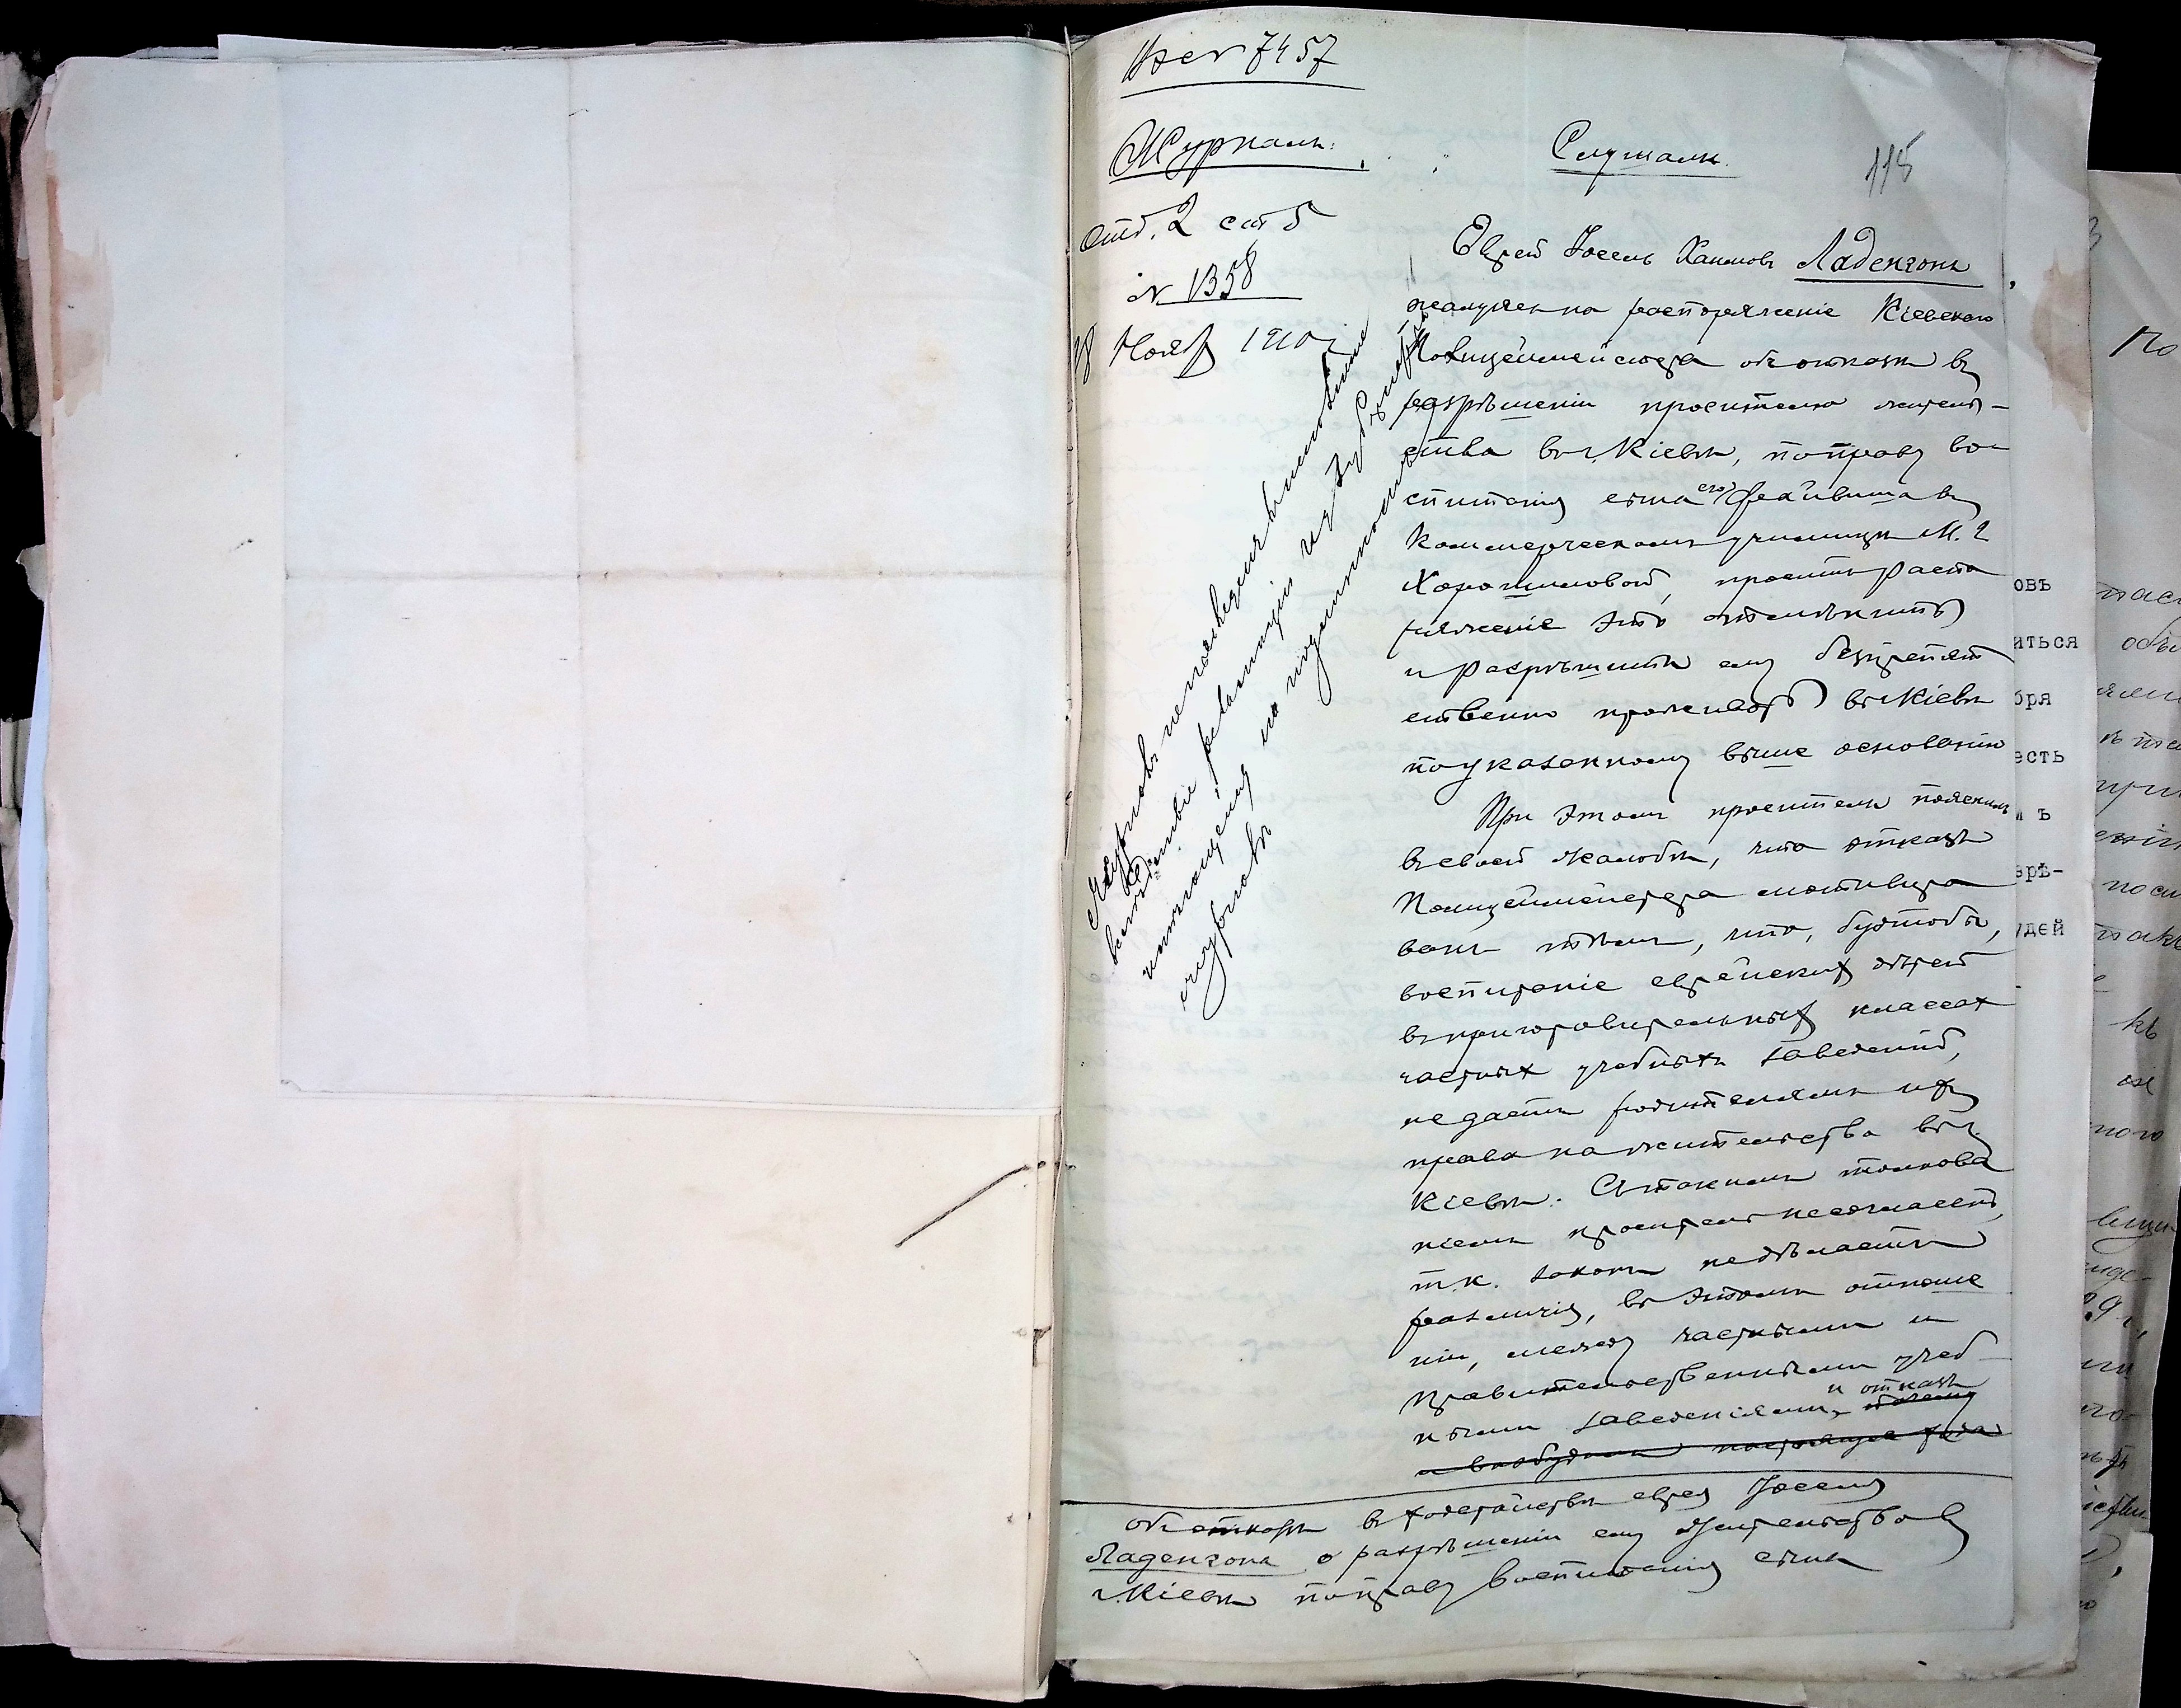 7457
Журналъ.
Слушали.
115
отд. 2 ст 5
№ 1358
18 Нояб 1910 г
Еврей Іосель Хаимовъ Ладензонъ
жалуется на распоряженіе Кіевскаго
Полиціймейстера объ отказѣ въ
разрѣшеніи просителю житель-
ства въ г. Кіевѣ, по праву во-
спитанія сына его Фейвиша въ
Коммерческомъ училищѣ М. 2
Хорошиловой, проситъ распо
ряженіе это отмѣнить
и разрѣшить ему безпрепят
ственно проживать въ г. Кіевѣ
по указанному выше основанію
При этомъ проситель пояснилъ
въ своей жалобѣ, что отказъ
Полиціймейстера мотивиро
ванъ тѣмъ, что, будто бы,
воспитаніе еврейскихъ дѣтей
въ приготовительныхъ классахъ
частныхъ учебныхъ заведеній,
не даетъ родителямъ ихъ
права на жительство въ г.
Кіевѣ. Съ такимъ толкова
ніемъ проситель не согласенъ,
т.к. законъ не дѣлаетъ
различія, въ этомъ отноше
ніи, между частными и
правительственными учеб-
ными заведеніями, и отказъ
и возбудилъ настоящее
объ отказѣ въ ходатайствѣ еврея Іоселя
Ладензона о разрѣшеніи ему жительства въ
г. Кіевѣ по праву воспитанія сына
Журналъ не
вслѣдствіе рекламаціи изъ
по подлинности
журналовъ
овъ
иться
бря
есть
ъ
врѣ-
удей